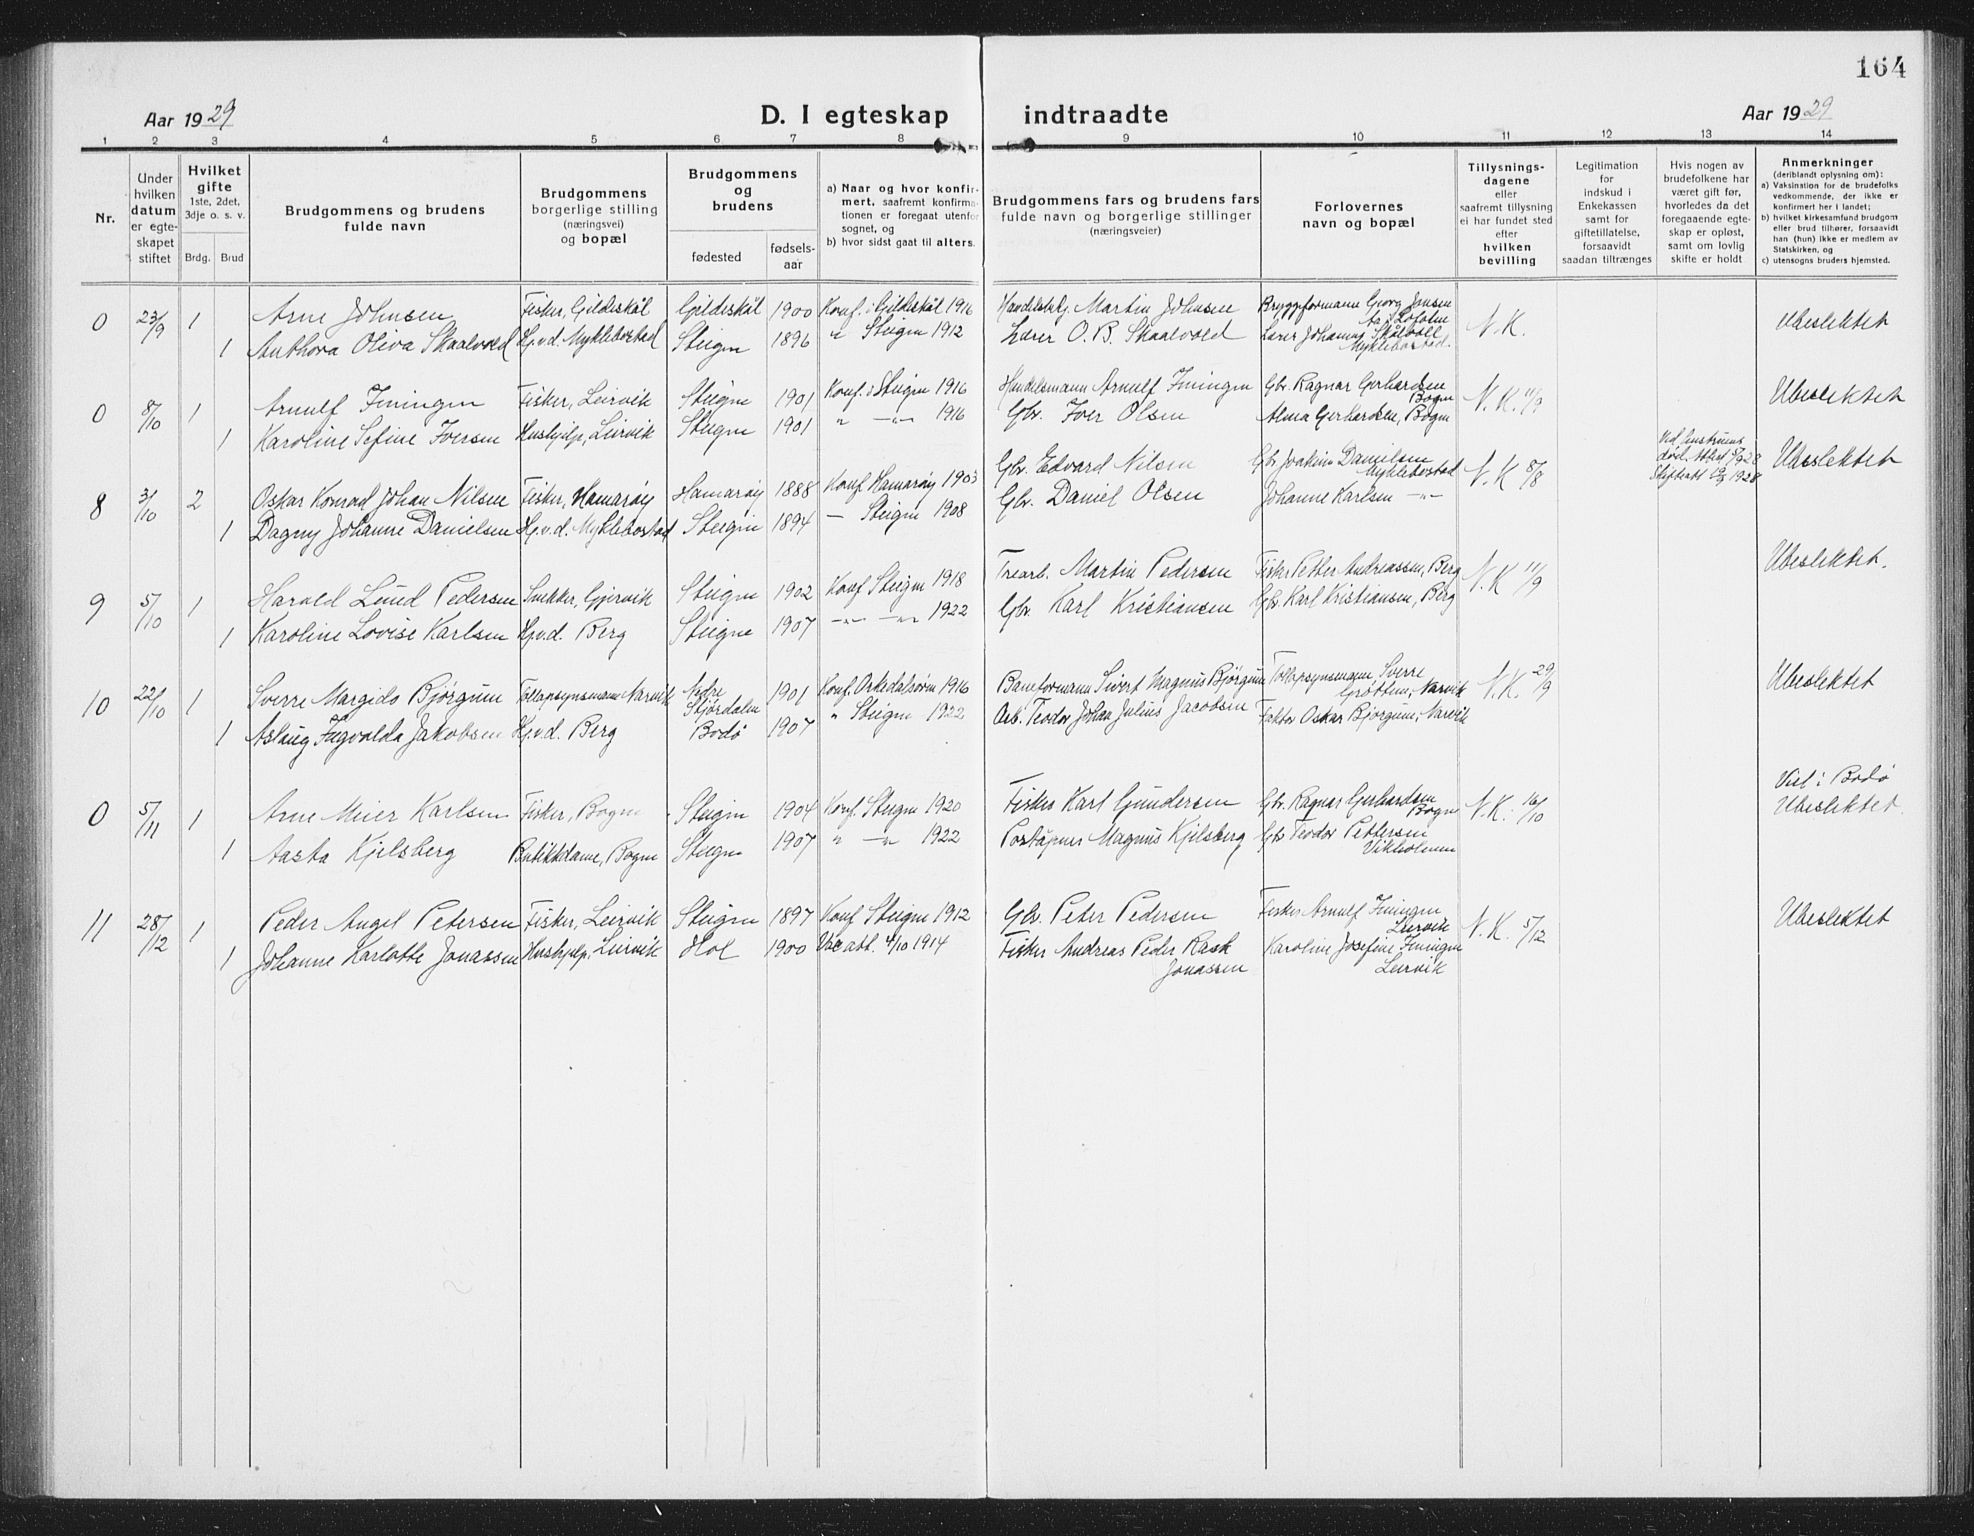 164
Aar 1929
D. I egteskap indtraadte
Aar 1929
1 2 3 4 5 6 7 8 9 10 11 12 13 14
Nr.
Under hvilken datum er egteskapet stiftet
Hvilket gifte 1ste, 2det, 3dje o. s. v.
Brdg. Brud
Brudgommens og brudens fulde navn
Brudgommens borgerlige stilling (næringsvei) og bopæl
Brudgommens og brudens
fødested
fødselsaar
a) Naar og hvor konfirmert, saafremt konfirmationen er foregaat utenfor sognet, og
b) hvor sidst gaat til alters.
Brudgommens fars og brudens fars fulde navn og borgerlige stillinger (næringsveier)
Forlovernes navn og bopæl
Tillysningsdagene eller saafremt tillysning ei har fundet sted efter hvilken bevilling
Legitimation for indskud i Enkekassen samt for giftetillatelse, forsaavidt saadan tiltrænges
Hvis nogen av brudefolkene har været gift før, hvorledes da det foregaaende egteskap er opløst, samt om lovlig skifte er holdt
Anmerkninger (deriblandt oplysning om):
a) Vaksination for de brudefolks vedkommende, der ikke er konfirmert her i landet;
b) hvilket kirkesamfund brudgom eller brud tilhører, forsaavidt han (hun) ikke er medlem av Statskirken, og
c) utensogns bruders hjemsted.
0 23/9 1 Arne Johnsen Fisker, Gildeskål Gildeskål 1900 Konf. i Gildeskål 1916 Martin Johnsen Bryggeformann Georg Jensen Aa i Lofoten N.K. Ubeslektet
1 Anthora Oliva Skaalvold Hp.v.d. Myklebostad Steigen 1896 " Steigen 1912 Lærer O. B. Skaalvold Lærer Johannes Skålvoll Myklebostad.
0 8/10 1 Arnulf Iningen Fisker, Leirvik Steigen 1901 Konf. i Steigen 1916 Handelsmann Arnulf Iningen Gbr. Ragnar Gerhardsen Bogen N.K. 11/9 Ubeslektet
1 Karoline Sefine Iversen Hushjelp, Leirvik Steigen 1901 " -"- 1916 Gbr. Iver Olsen Alma Gerhardsen, Bogen
8 3/10 2 Oskar Konrad Johan Nilsen Fisker, Hamarøy Hamarøy 1888 Konf Hamarøy 1903 Gbr. Edvard Nilsen Gbr Joakim Danielsen Myklebostad N.K 8/8 Ved hustruens død. Attest 1928 Ubeslektet
1 Dagny Johanne Danielsen Hp.v.d. Myklebostad Steigen 1894 — Steigen 1908 Gbr. Daniel Olsen Johanne Karlsen -"-
9 5/10 1 Harold Lund Pedersen Snekker, Gjervik Steigen 1902 Konf Steigen 1918 Trearb. Martin Pedersen Fisker Petter Andreassen, Berg N.K 11/9 Ubeslektet.
1 Karoline Lovise Karlsen Hp.v.d. Berg Steigen 1907 -"- -"- 1922 Gbr. Karl Kristiansen Gbr. Karl Kristiansen, Berg
10 22/10 1 Sverre Margido Bjørgum Tollopsynsmann Narvik Nedre Stjørdalen 1901 Konf. Orkedalsøren 1916 Baneformann Sivert Magnus Bjørgum Tollopsynsmann Sverre Grøtten, Narvik N.K. 29/9 Ubeslektet
1 Aslaug Ingvalda Jakobsen Hp.v.d. Berg Bodø 1907 " Steigen 1922 Arb. Teodor Johan Julius Jacobsen Faktor Oskar Bjørgum, Narvik
0 5/11 1 Arne Meier Karlsen Fisker, Bogen Steigen 1904 Konf. Steigen 1920 Fisker Karl Gundersen Gbr. Ragnar Gerhardsen Bogen N.K. 16/10 Viet i Bodø Ubeslektet.
1 Aasta Kjelsberg Butikkdame, Bogen Steigen 1907 " -"- 1922 Poståpner Magnus Kjelsberg Gbr Teodor Pettersen Vikholmen
11 28/12 1 Peder Angel Petersen Fisker, Leirvik Steigen 1897 Konf Steigen 1912 Gbr. Peter Pedersen Fisker Arnulf Iningen Leirvik N.K. 5/12 Ubeslektet
1 Johanne Karlotte Jonassen Hushjelp, Leirvik Hol 1900 Vac att. 4/10 1914 Fisker Andreas Peder Rask Jonassen Karoline Josefine Iningen Leirvik